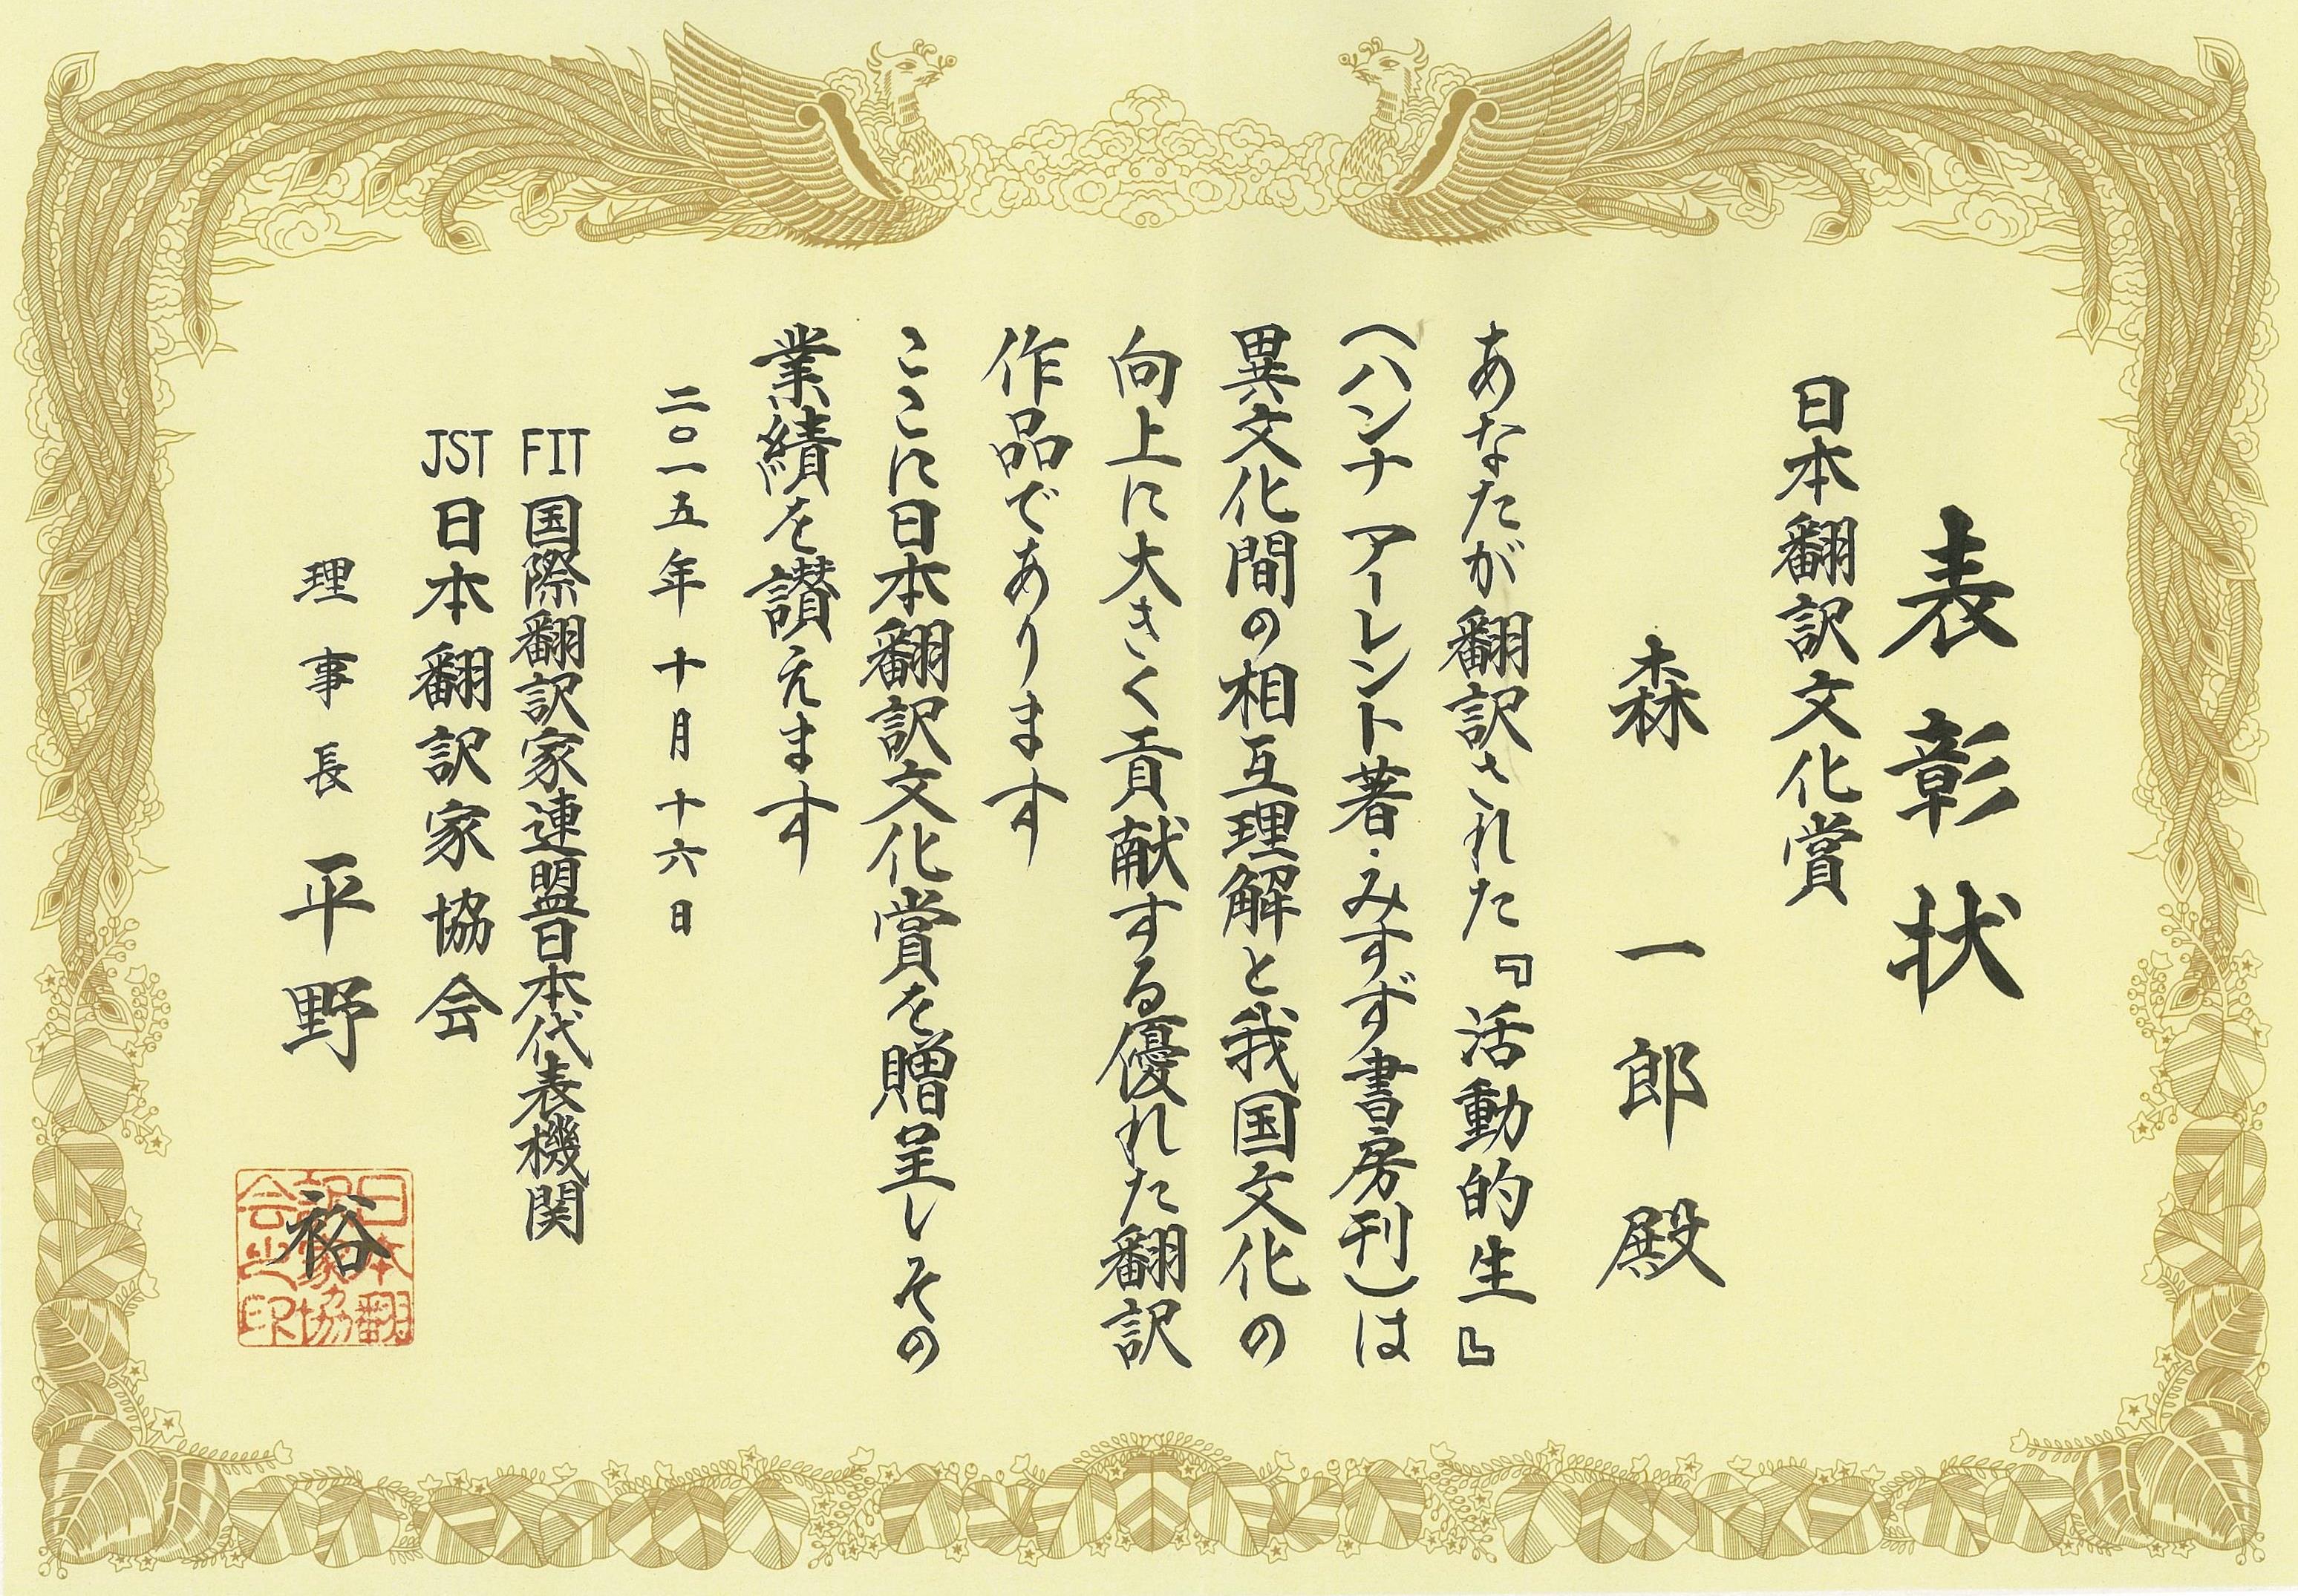 表彰状
日本翻訳文化賞
森一郎殿
あなたが翻訳された『活動的生』
(ハンナ アーレント著・みすず書房刊)は
異文化間の相互理解と我国文化の
向上に大きく貢献する優れた翻訳
作品であります
ここに日本翻訳文化賞を贈呈しその
業績を讃えます
二〇一五年十月十六日
FIT国際翻訳家連盟日本代表機関
JST日本翻訳家協会
理事長 平野裕
日本翻
訳家協
会之印